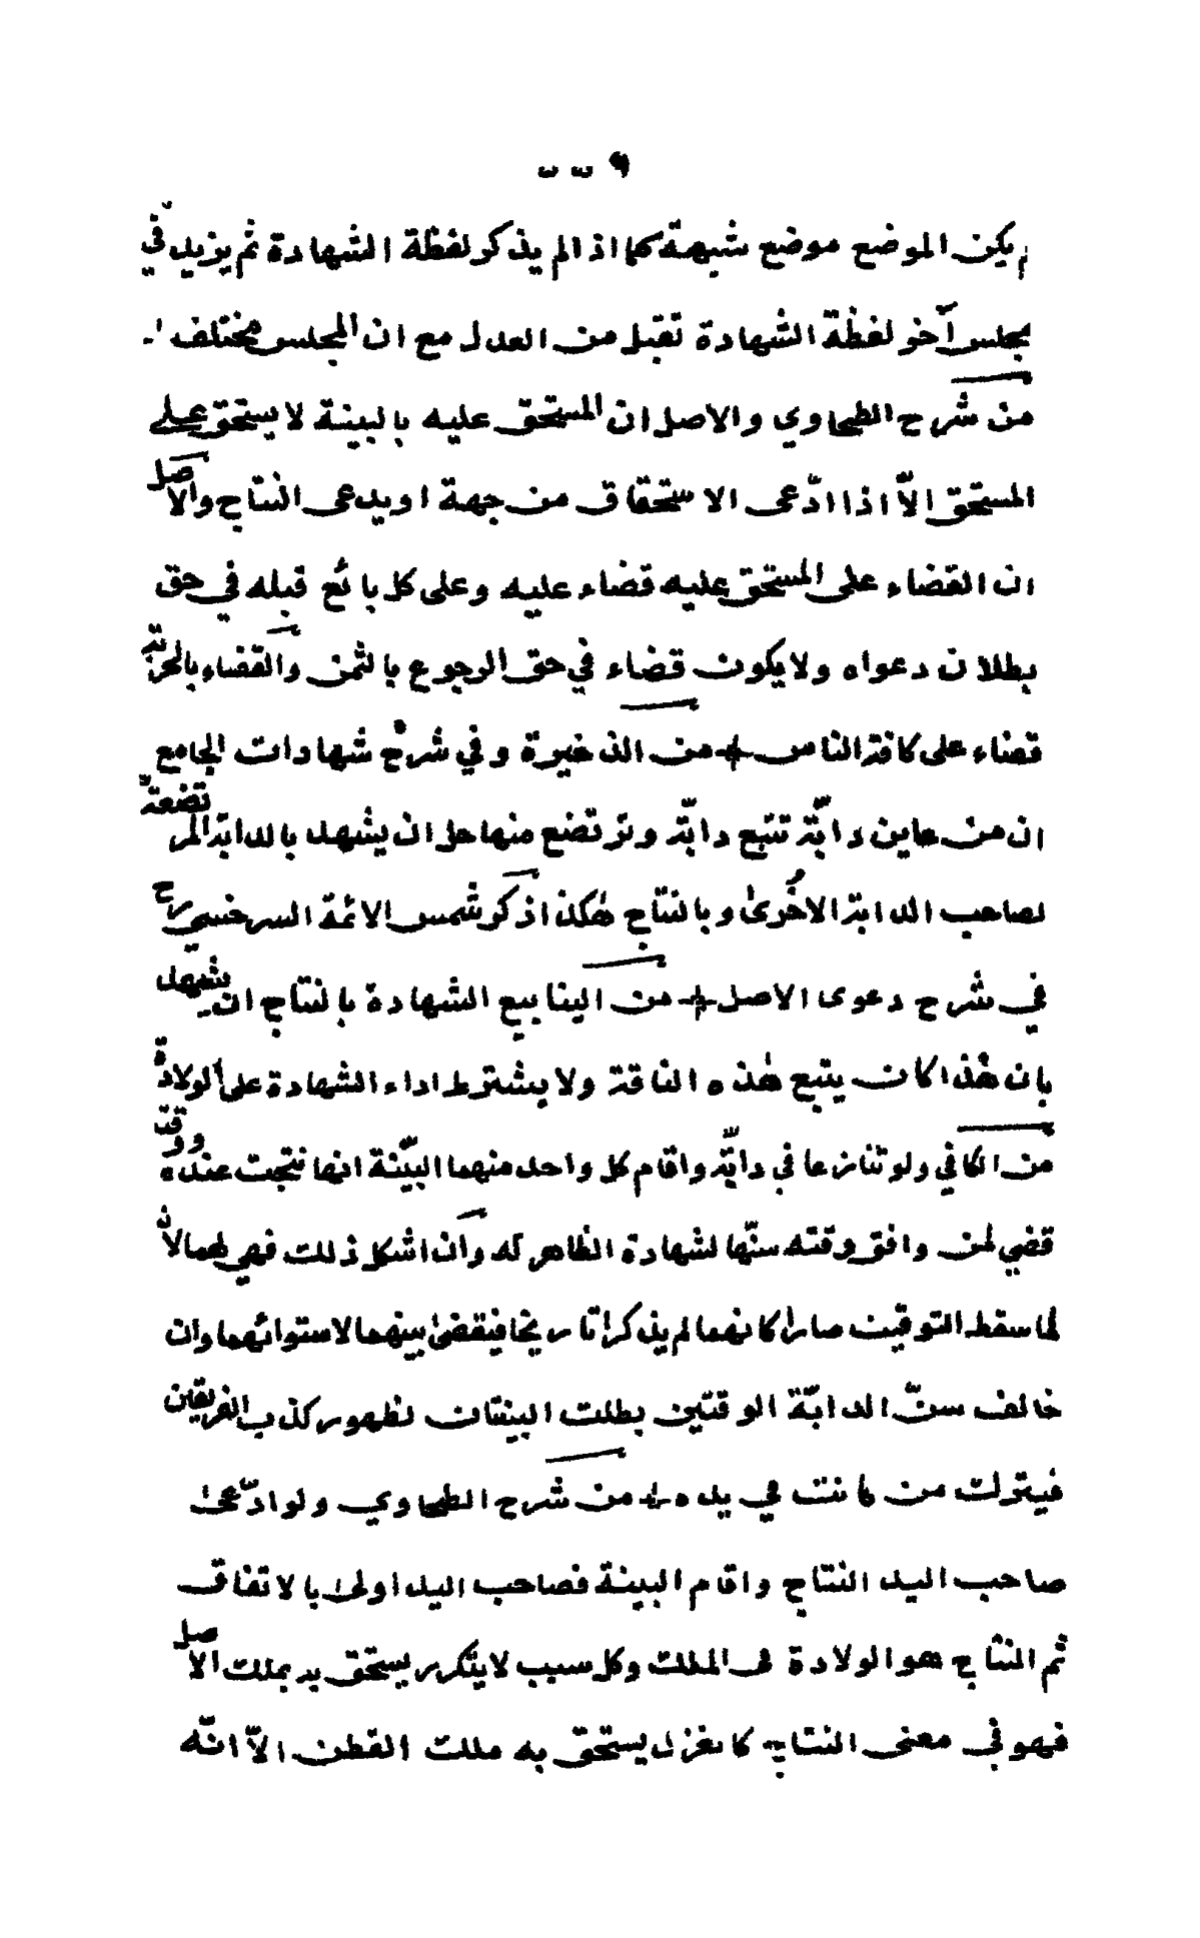 لم يكن الموضع موضع شبهة كما اذا لم يذكر لفظة الشهادة ثم يزيد في
مجلس آخر لفظة الشهادة تقبل من العدل مع ان المجلس مختلف
من شرح الطحاوي والاصل ان المستحق عليه بالبينة لا يستحق على
المستحق الّا اذا ادّعى الاستحقاق من جهة او يدعى النتاج والاصل
ان القضاء على المستحق عليه قضاء عليه وعلى كل بائع قبله في حق
بطلان دعواه ولا يكون قضاء في حق الرجوع بالثمن والقضاء بالحرّية
قضاء على كافة الناس من الذخيرة وفي شرح شهادات الجامع
ان من عاين دابّة تتبع دابّة وترتضع منها حل ان يشهد بالدابة المرتضعة
لصاحب الدابة الاخرى وبالنتاج هكذا ذكر شمس الائمة السرخسي رح
في شرح دعوى الاصل من الينابيع الشهادة بالنتاج ان يشهد
بان هذا كان يتبع هذه الناقة ولا يشترط اداء الشهادة على الولادة
من الكافي ولو تنازعا في دابّة واقام كل واحد منهما البيّنة انها نتجت عنده ووقّتا
قضي لمن وافق وقته سنّها لشهادة الظاهر له وان اشكل ذلك فهي لهما لان
لما سقط التوقيت صارا كانهما لم يذكرا تاريخا فيقضى بينهما لاستوائهما وان
خالف سنّ الدابّة الوقتين بطلت البينتان لظهور كذب الفريقين
فيترك من كانت في يده من شرح الطحاوي ولو ادّعى
صاحب اليد النتاج واقام البينة فصاحب اليد اولى بالاتفاق
ثم النتاج هو الولادة فى الملك وكل سبب لا يتكرر يستحق به ملك الاصل
فهو في معنى النتاج كالغزل يستحق به ملك القطن الّا انّه